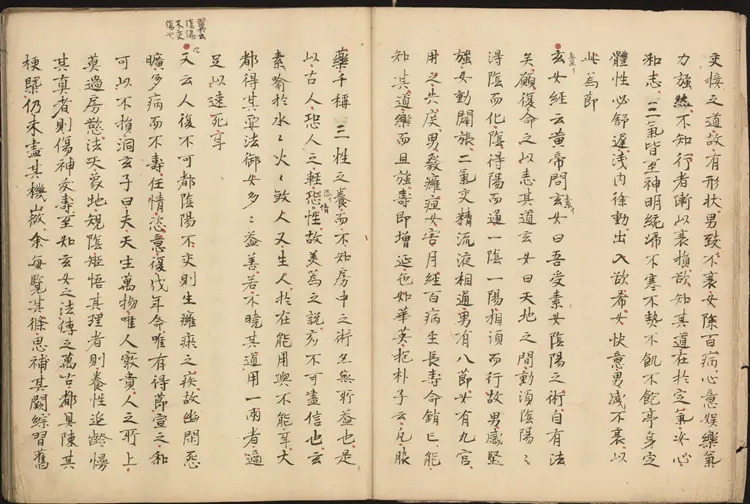 交接之道故有形狀男致不衰女除百病心意娯樂氣
力強然不知行者漸以衰損欲知其道在於定氣安心
和志三氣皆至神明統歸不寒不熱不飢不飽亭身定
體性必舒遅淺内徐動出入欲希女快意男盛不衰以
此為節
玄女經云黄帝問玄女曰吾受素女陰陽之術自有法
矣願復命之以悉其道玄女曰天地之間動須陰陽々
得陰而化陰得陽而通一陰一陽相須而行故男感堅
強女動闢張二氣交精流液相通男有八節女有九宮
用之失度男發癰疽女害月經百病生長壽命銷亡能
知其道樂而且強壽即增延色如華英抱朴子云凡服
藥千種三牲之養而不知房中之術亦無所益也是
以古人恐人之輕恣情性故美為之説亦不可盡信也玄
素喩於水々火々煞人又生人於在能用與不能耳大
都得其要法御女多々益善若不曉其道用一兩者適
足以速死耳
又云人復不可都陰陽不交則生癰瘀之疾故幽閑怨
曠多病而不壽任情恣意復伐年命唯有得節宣之和
可以不損洞玄子曰夫天生萬物唯人最貴人之所上
莫過房慾法天象地規陰矩陽悟其理者則養性延齡慢
其真者則傷神夭壽至如玄女之法傳之萬古都具陳其
梗槩仍未盡其機微余毎覽其條思補其闕綜習舊